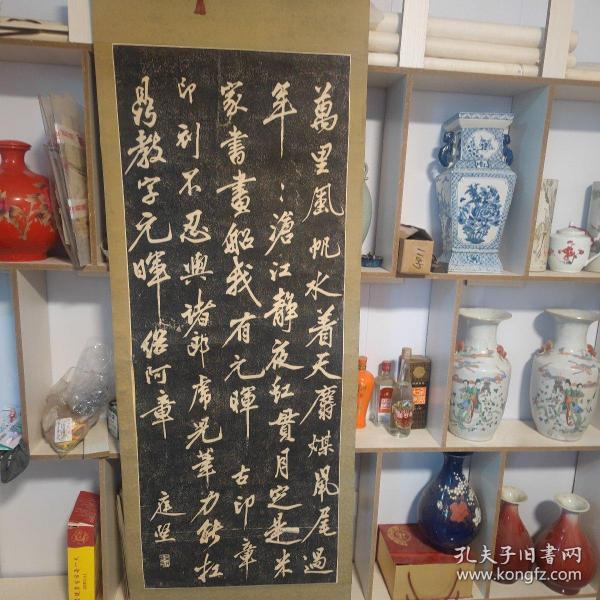 萬里風帆水着天麝煤鼠尾過
年〻滄江靜夜虹貫月定是米
家書畫船我有元暉古印章
印刓不忍與諸郎虎兒筆力能扛
鼎教字元暉继阿章
庭堅
孔夫子旧书网
www.kongfz.com